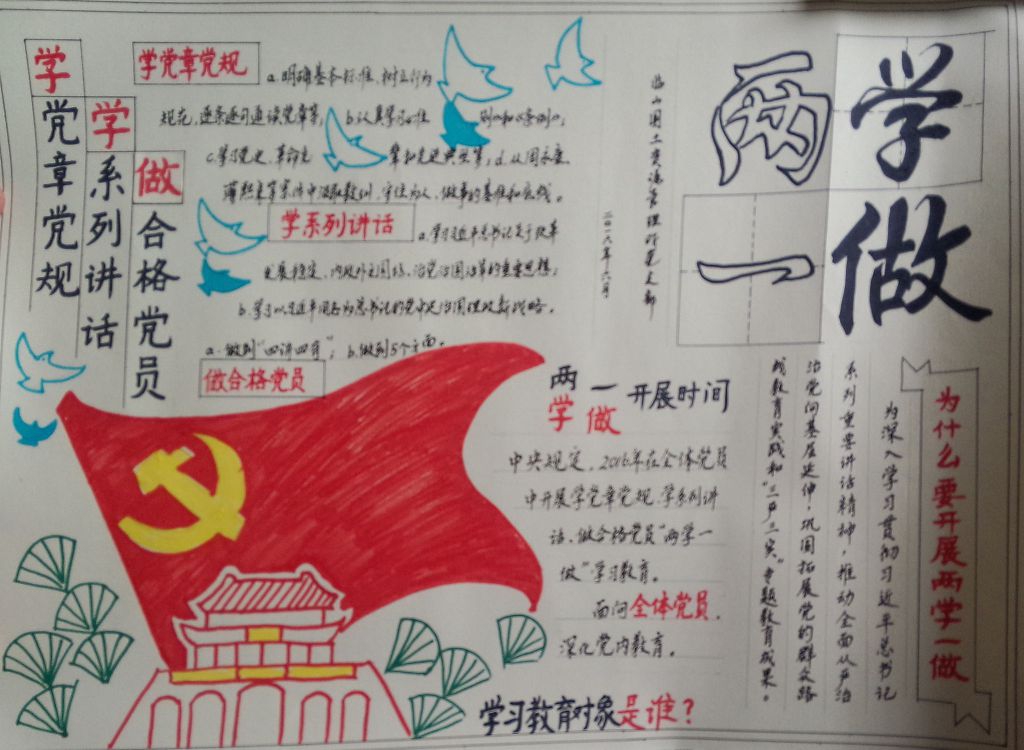 学党章党规
学系列讲话
做合格党员
学党章党规
a.明确基本标准,树立行为
规范,逐条逐句通读党章等;b.认真学习《准则》和《条例》;
c.学习党史、革命先辈和先进典型等;d.从周永康、
薄熙来等案件中汲取教训,守住为人、做事的基准和底线。
学系列讲话
a.学习习近平总书记关于改革
发展稳定、内政外交国防、治党治国治军的重要思想;
b.学习以习近平同志为总书记的党中央治国理政新战略。
a.做到“四讲四有”;b.做到5个方面。
做合格党员
两学一做
国土资源管理所党支部
二〇一六年六月
两学一做开展时间
中央规定,2016年在全体党员
中开展学党章党规、学系列讲
话、做合格党员“两学一
做”学习教育。
面向全体党员,
深化党内教育。
学习教育对象是谁?
为什么要开展两学一做
为深入学习贯彻习近平总书记
系列重要讲话精神,推动全面从严治
治党向基层延伸,巩固拓展党的群众路
线教育实践和“三严三实”专题教育成果。